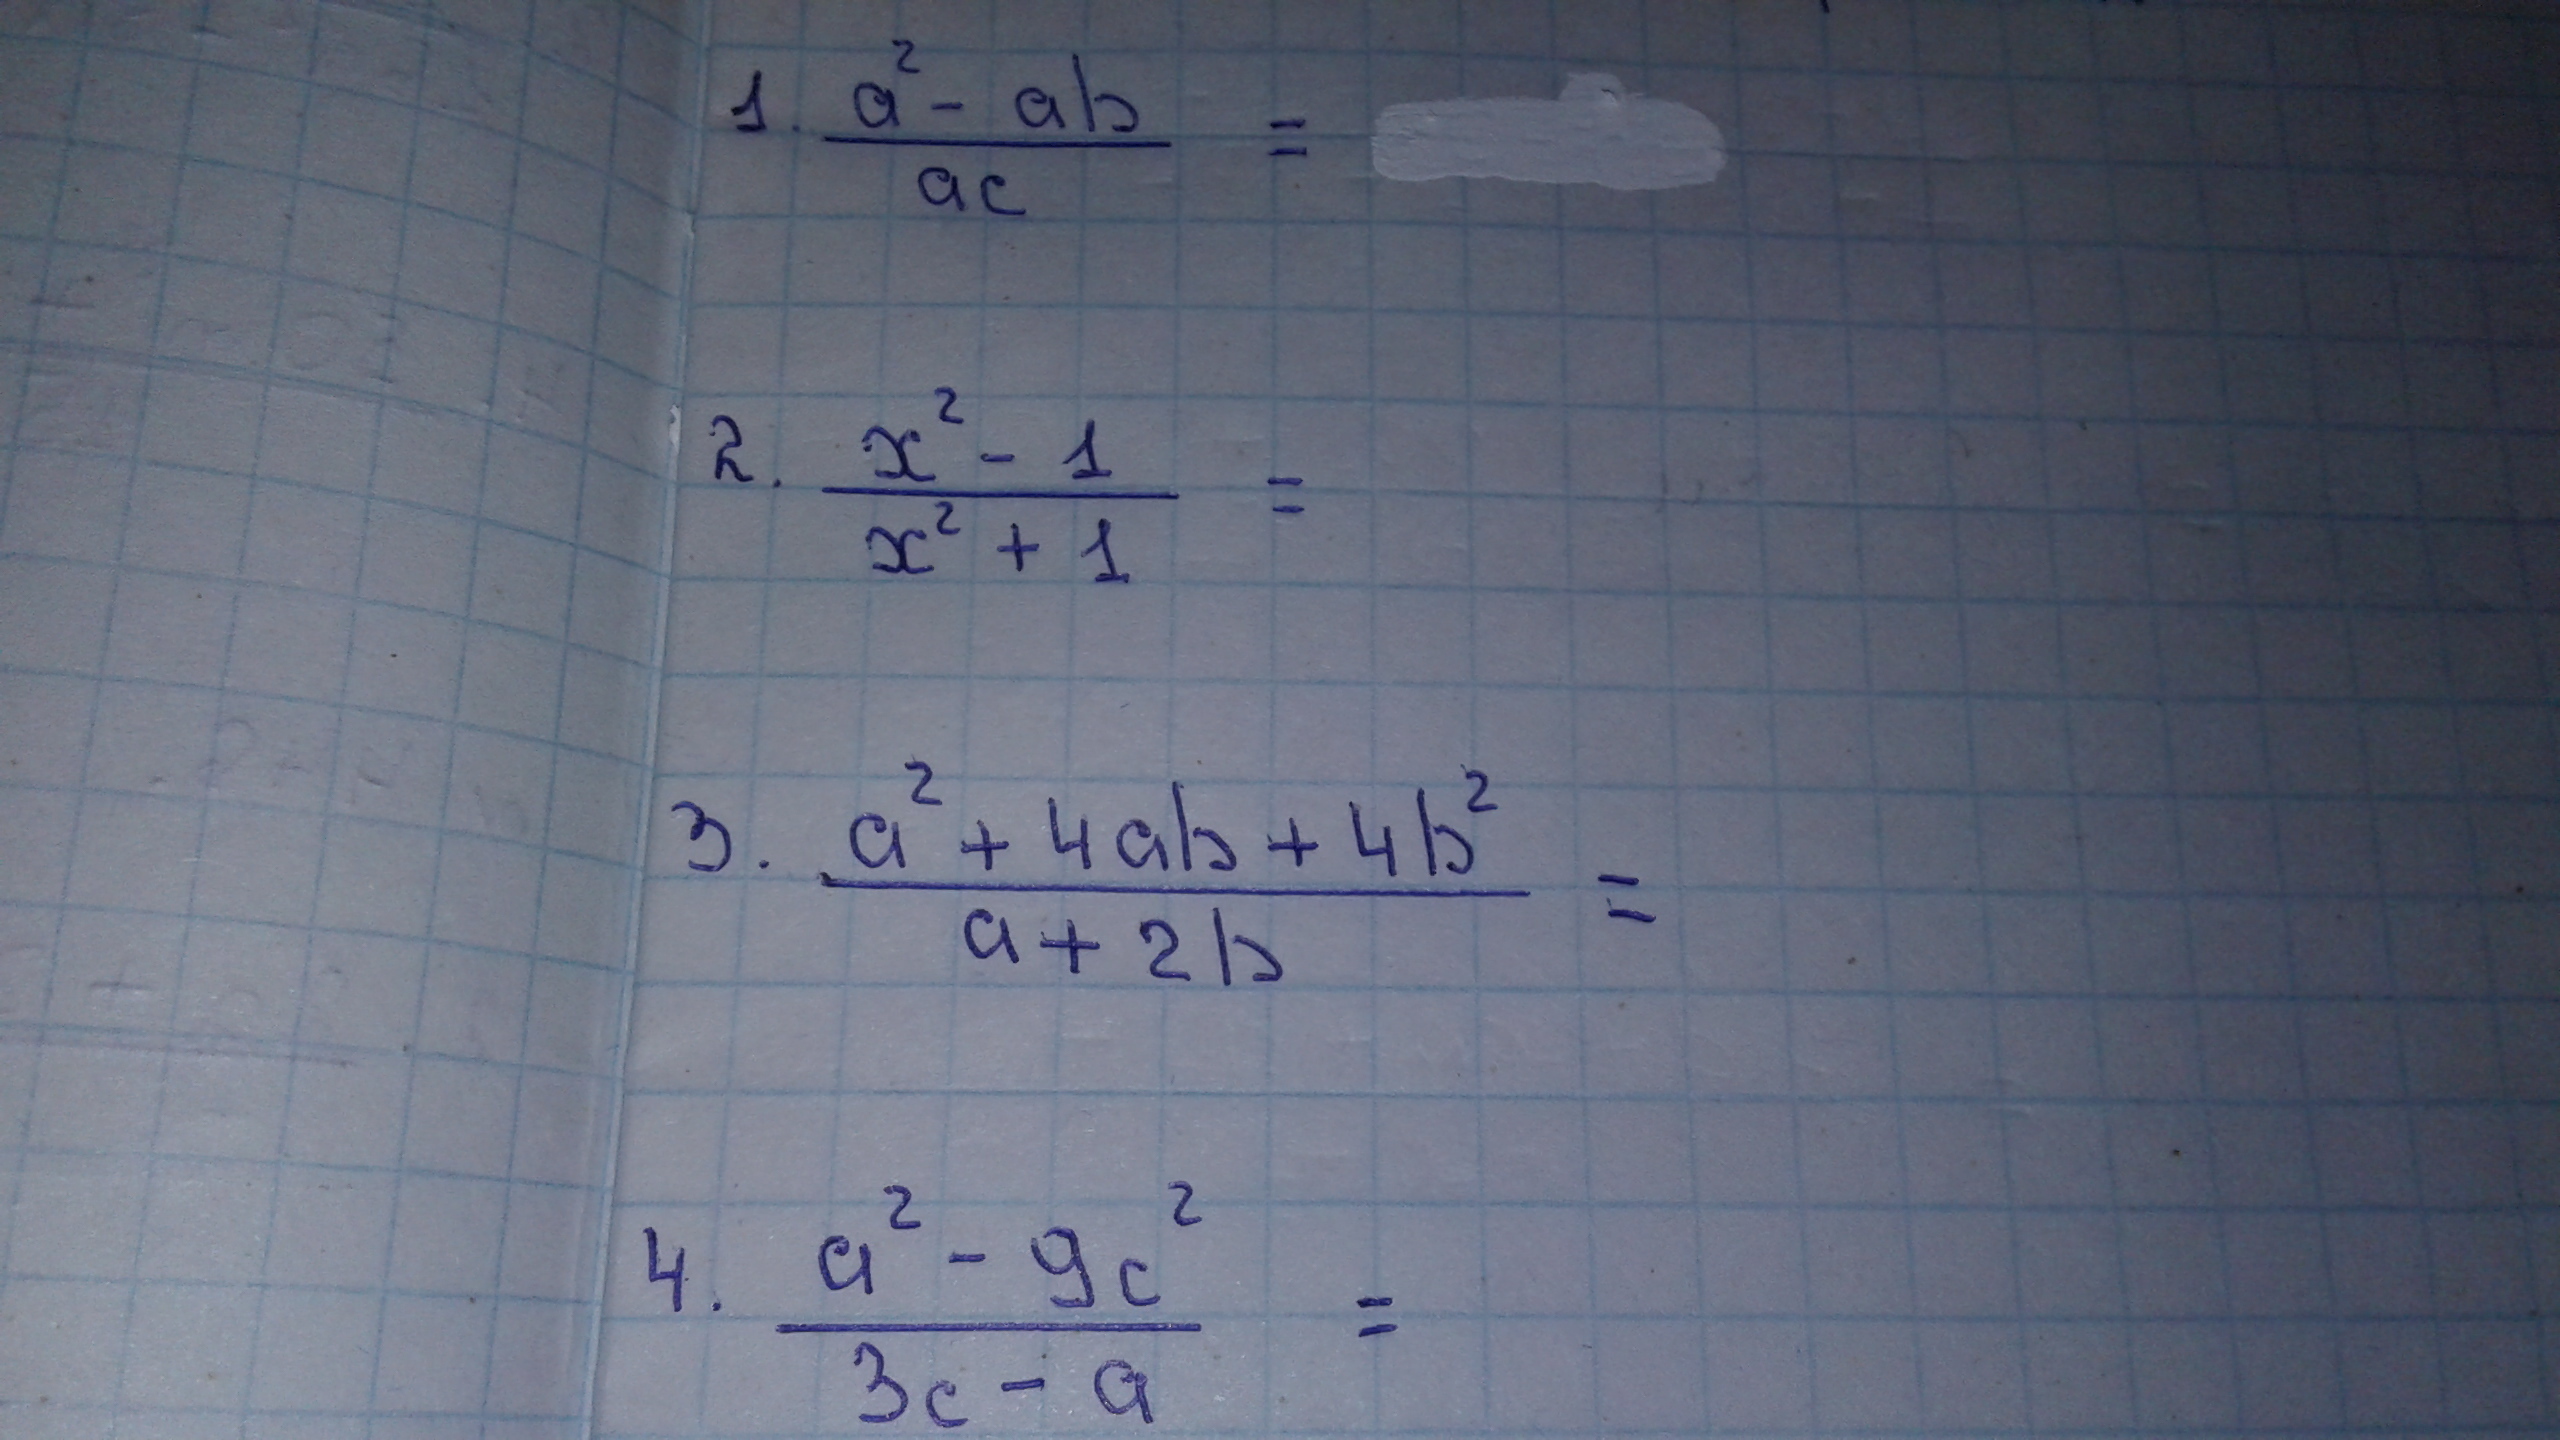 1. (a² - ab)/(ac) =
2. (x² - 1)/(x² + 1) =
3. (a² + 4ab + 4b²)/(a + 2b) =
4. (a² - 9c²)/(3c - a) =